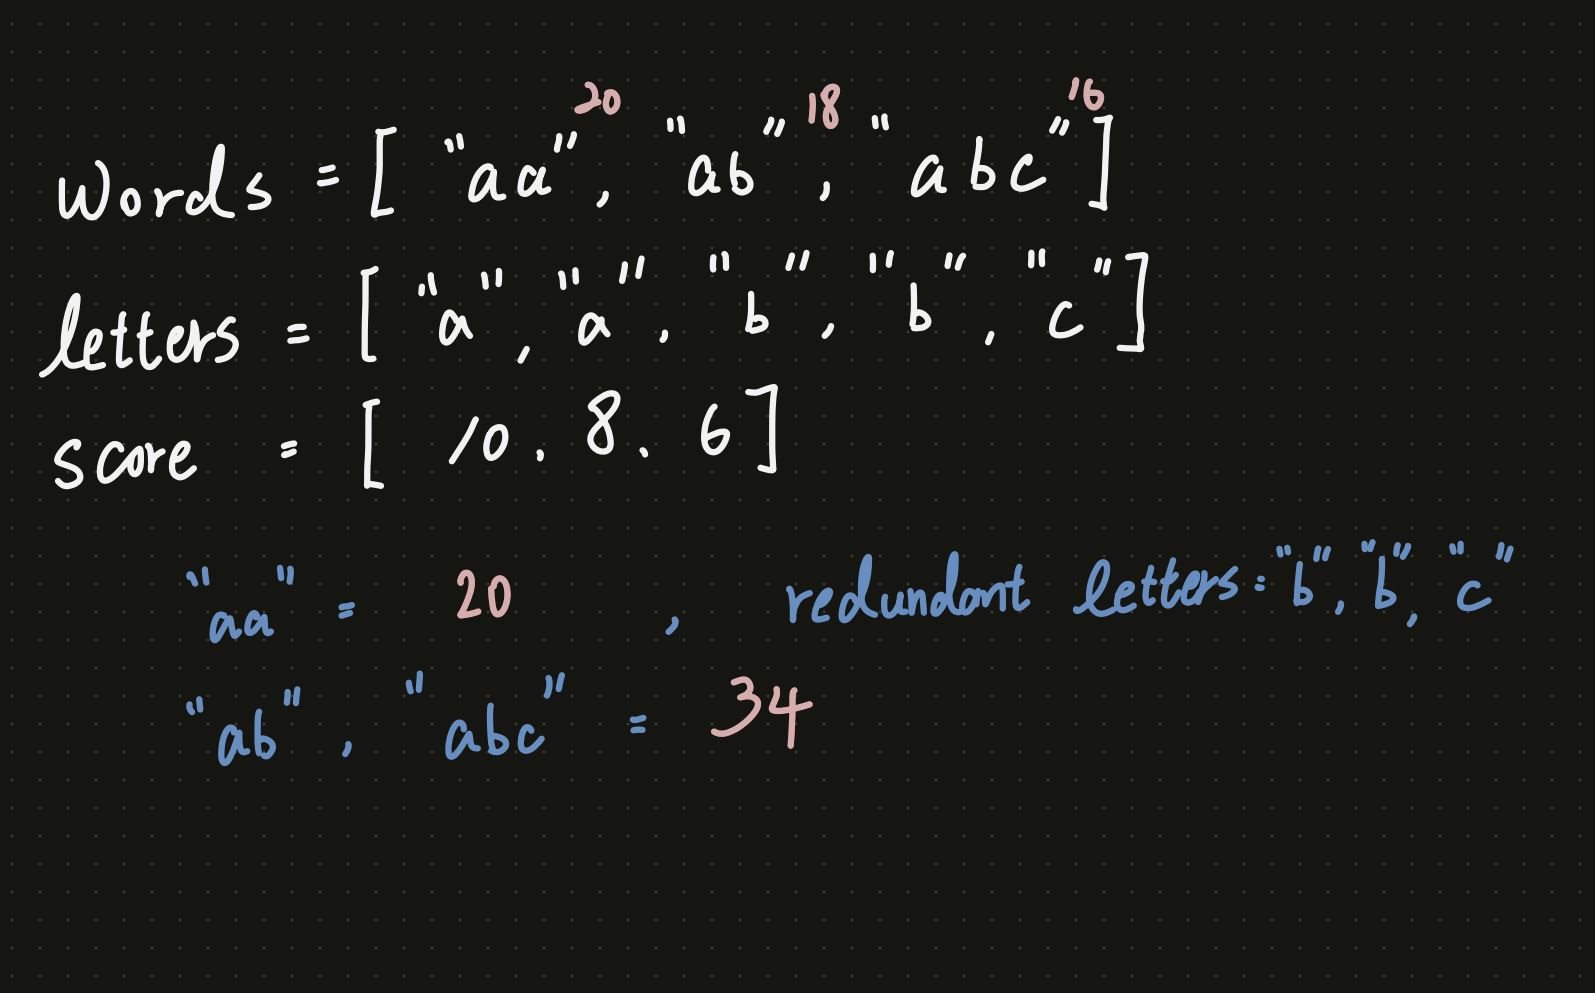 20 18 16
words = [ "aa", "ab", "abc" ]
letters = [ "a", "a", "b", "b", "c" ]
score = [ 10. 8. 6 ]
"aa" = 20 , redundant letters: "b", "b", "c"
"ab", "abc" = 34